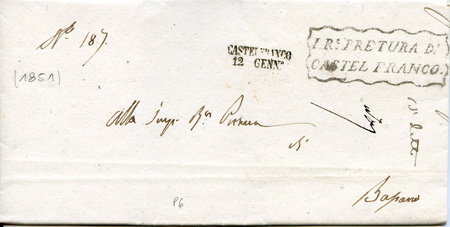 N° 187.
CASTELFRANCO
12 GENN°
I. R.ᴬ PRETURA DI
CASTEL FRANCO.
(1851)
alla Imp. R.ᵃ Pretura
di
Bassano
P6